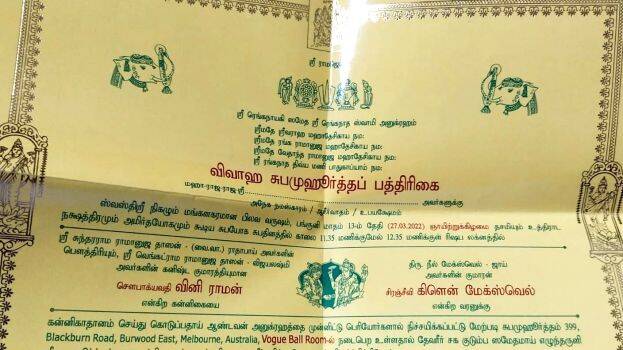 ஸ்ரீ ராமஜெயம்
ஸ்ரீ ரெங்கநாயகி ஸமேத ஸ்ரீ ரெங்கநாத ஸ்வாமி அனுக்ரஹம்
ஸ்ரீமதே ஸ்ரீவராஹ மஹாதேசிகாய நம:
ஸ்ரீமதே ரங்க ராமானுஜ மஹாதேசிகாய நம:
ஸ்ரீமதே வேதாந்த ராமானுஜ மஹாதேசிகாய நம:
ஸ்ரீ ரங்கநாத திவ்ய மணி பாதுகாப்யாம் நம:
விவாஹ சுபமுஹூர்த்தப் பத்திரிகை
மஹா-ராஜ-ராஜ-ஸ்ரீ அவர்களுக்கு
அநேக நமஸ்காரம் / ஆசிர்வாதம் / உபயக்ஷேமம்
ஸ்வஸ்திஸ்ரீ நிகழும் மங்களகரமான பிலவ வருஷம், பங்குனி மாதம் 13-ம் தேதி (27.03.2022) ஞாயிற்றுக்கிழமை தசமியும் உத்திராட
நக்ஷத்திரமும் அமிர்தயோகமும் கூடிய சுபயோக சுபதினத்தில் காலை 11.35 மணிக்குமேல் 12.35 மணிக்குள் ரிஷப லக்னத்தில்
ஸ்ரீ சுந்தரராம ராமானுஜ தாஸன் - (வை.வா.) ராதாபாய் அவர்களின்
பௌத்திரியும், ஸ்ரீ வெங்கட்ராம ராமானுஜ தாஸன் - விஜயலஷ்மி
அவர்களின் கனிஷ்ட குமாரத்தியுமான
சௌபாக்யவதி வினி ராமன்
என்கிற கன்னிகையை
திரு. நீல் மேக்ஸ்வெல் - ஜாய்
அவர்களின் குமாரன்
சிரஞ்சீவி கிளென் மேக்ஸ்வெல்
என்கிற வரனுக்கு
கன்னிகாதானம் செய்து கொடுப்பதாய் ஆண்டவன் அனுக்ரஹத்தை முன்னிட்டு பெரியோர்களால் நிச்சயிக்கப்பட்டு மேற்படி சுபமுஹூர்த்தம் 399,
Blackburn Road, Burwood East, Melbourne, Australia, Vogue Ball Room-ல் நடைபெற உள்ளதால் தேவரீர் சக குடும்ப ஸமேதமாய் எழுந்தருளி